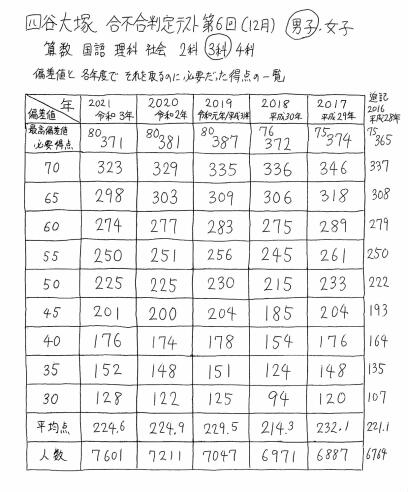 四谷大塚 合不合判定テスト第6回(12月) 男子・女子
算数 国語 理科 社会 2科 3科 4科
偏差値と 各年度で それを取るのに必要だった得点の一覧
年 偏差値 2021 令和3年 2020 令和2年 2019 令和元年/平成31年 2018 平成30年 2017 平成29年 追記 2016 平成28年
最高偏差値 必要得点 80 371 80 381 80 387 76 372 75 374 75 365
70 323 329 335 336 346 337
65 298 303 309 306 318 308
60 274 277 283 275 289 279
55 250 251 256 245 261 250
50 225 225 230 215 233 222
45 201 200 204 185 204 193
40 176 174 178 154 176 164
35 152 148 151 124 148 135
30 128 122 125 94 120 107
平均点 224.6 224.9 229.5 214.3 232.1 221.1
人数 7601 7211 7047 6971 6887 6764